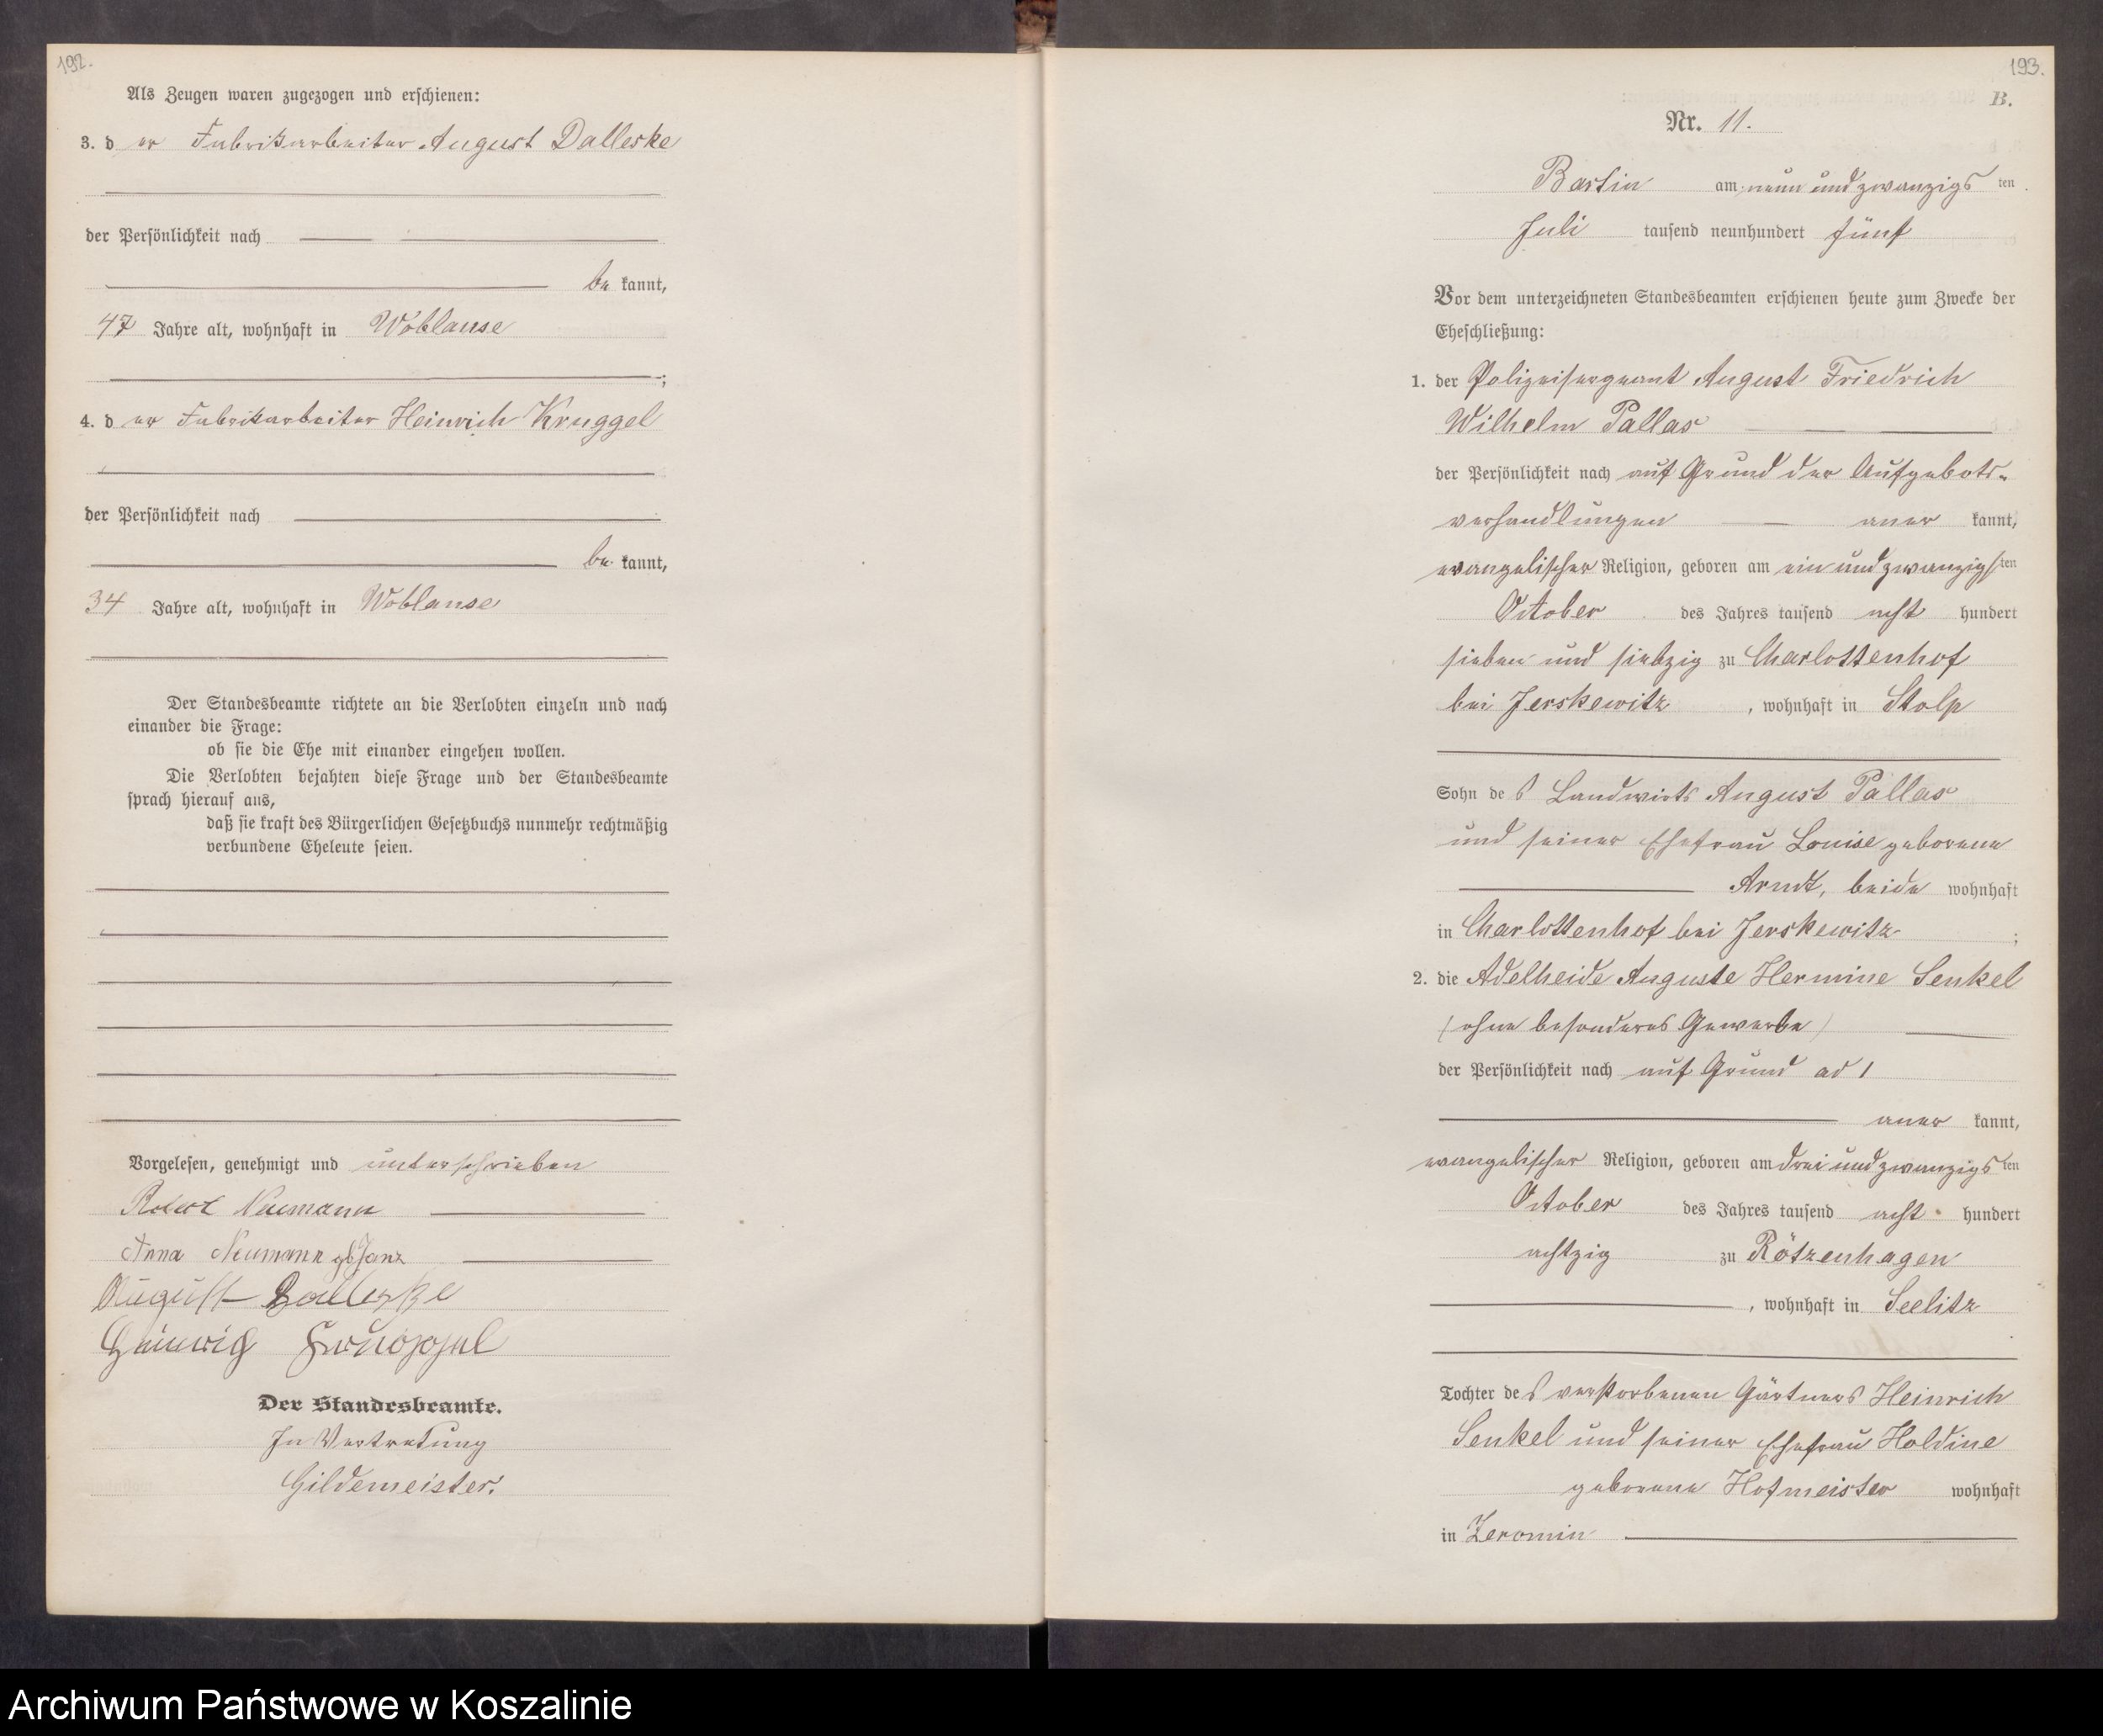 192.
Als Zeugen waren zugezogen und erschienen:
3. d er Fabrikarbeiter August Dalleske
der Persönlichkeit nach
be kannt,
47 Jahre alt, wohnhaft in Woblanse
;
4. d er Fabrikarbeiter Heinrich Kruggel
der Persönlichkeit nach
be kannt,
34 Jahre alt, wohnhaft in Woblanse
Der Standesbeamte richtete an die Verlobten einzeln und nach
einander die Frage:
ob sie die Ehe mit einander eingehen wollen.
Die Verlobten bejahten diese Frage und der Standesbeamte
sprach hierauf aus,
daß sie kraft des Bürgerlichen Gesetzbuchs nunmehr rechtmäßig
verbundene Eheleute seien.
Vorgelesen, genehmigt und unterschrieben
Robert Neumann
Anna Neumann gb Janz
August Dalleske
Heinrich Kruggel
Der Standesbeamte.
In Vertretung
Gildemeister.
193.
B.
Nr. 11.
Bartin am neun und zwanzigs ten
Juli tausend neunhundert fünf
Vor dem unterzeichneten Standesbeamten erschienen heute zum Zwecke der
Eheschließung:
1. der Polizeisergeant August Friedrich
Wilhelm Pallas
der Persönlichkeit nach auf Grund der Aufgebots-
verhandlungen aner kannt,
evangelischer Religion, geboren am ein und zwanzigs ten
October des Jahres tausend acht hundert
sieben und siebzig zu Charlottenhof
bei Jerskewitz, wohnhaft in Stolp
Sohn des Landwirts August Pallas
und seiner Ehefrau Louise geborene
Arndt, beide wohnhaft
in Charlottenhof bei Jerskewitz ;
2. die Adelheide Auguste Hermine Senkel
(ohne besonderes Gewerbe)
der Persönlichkeit nach auf Grund ad 1
aner kannt,
evangelischer Religion, geboren am drei und zwanzigs ten
October des Jahres tausend acht hundert
achtzig zu Rötzenhagen
, wohnhaft in Seelitz
Tochter des verstorbenen Gärtners Heinrich
Senkel und seiner Ehefrau Holdine
geborene Hofmeister wohnhaft
in Zeromin
Archiwum Państwowe w Koszalinie